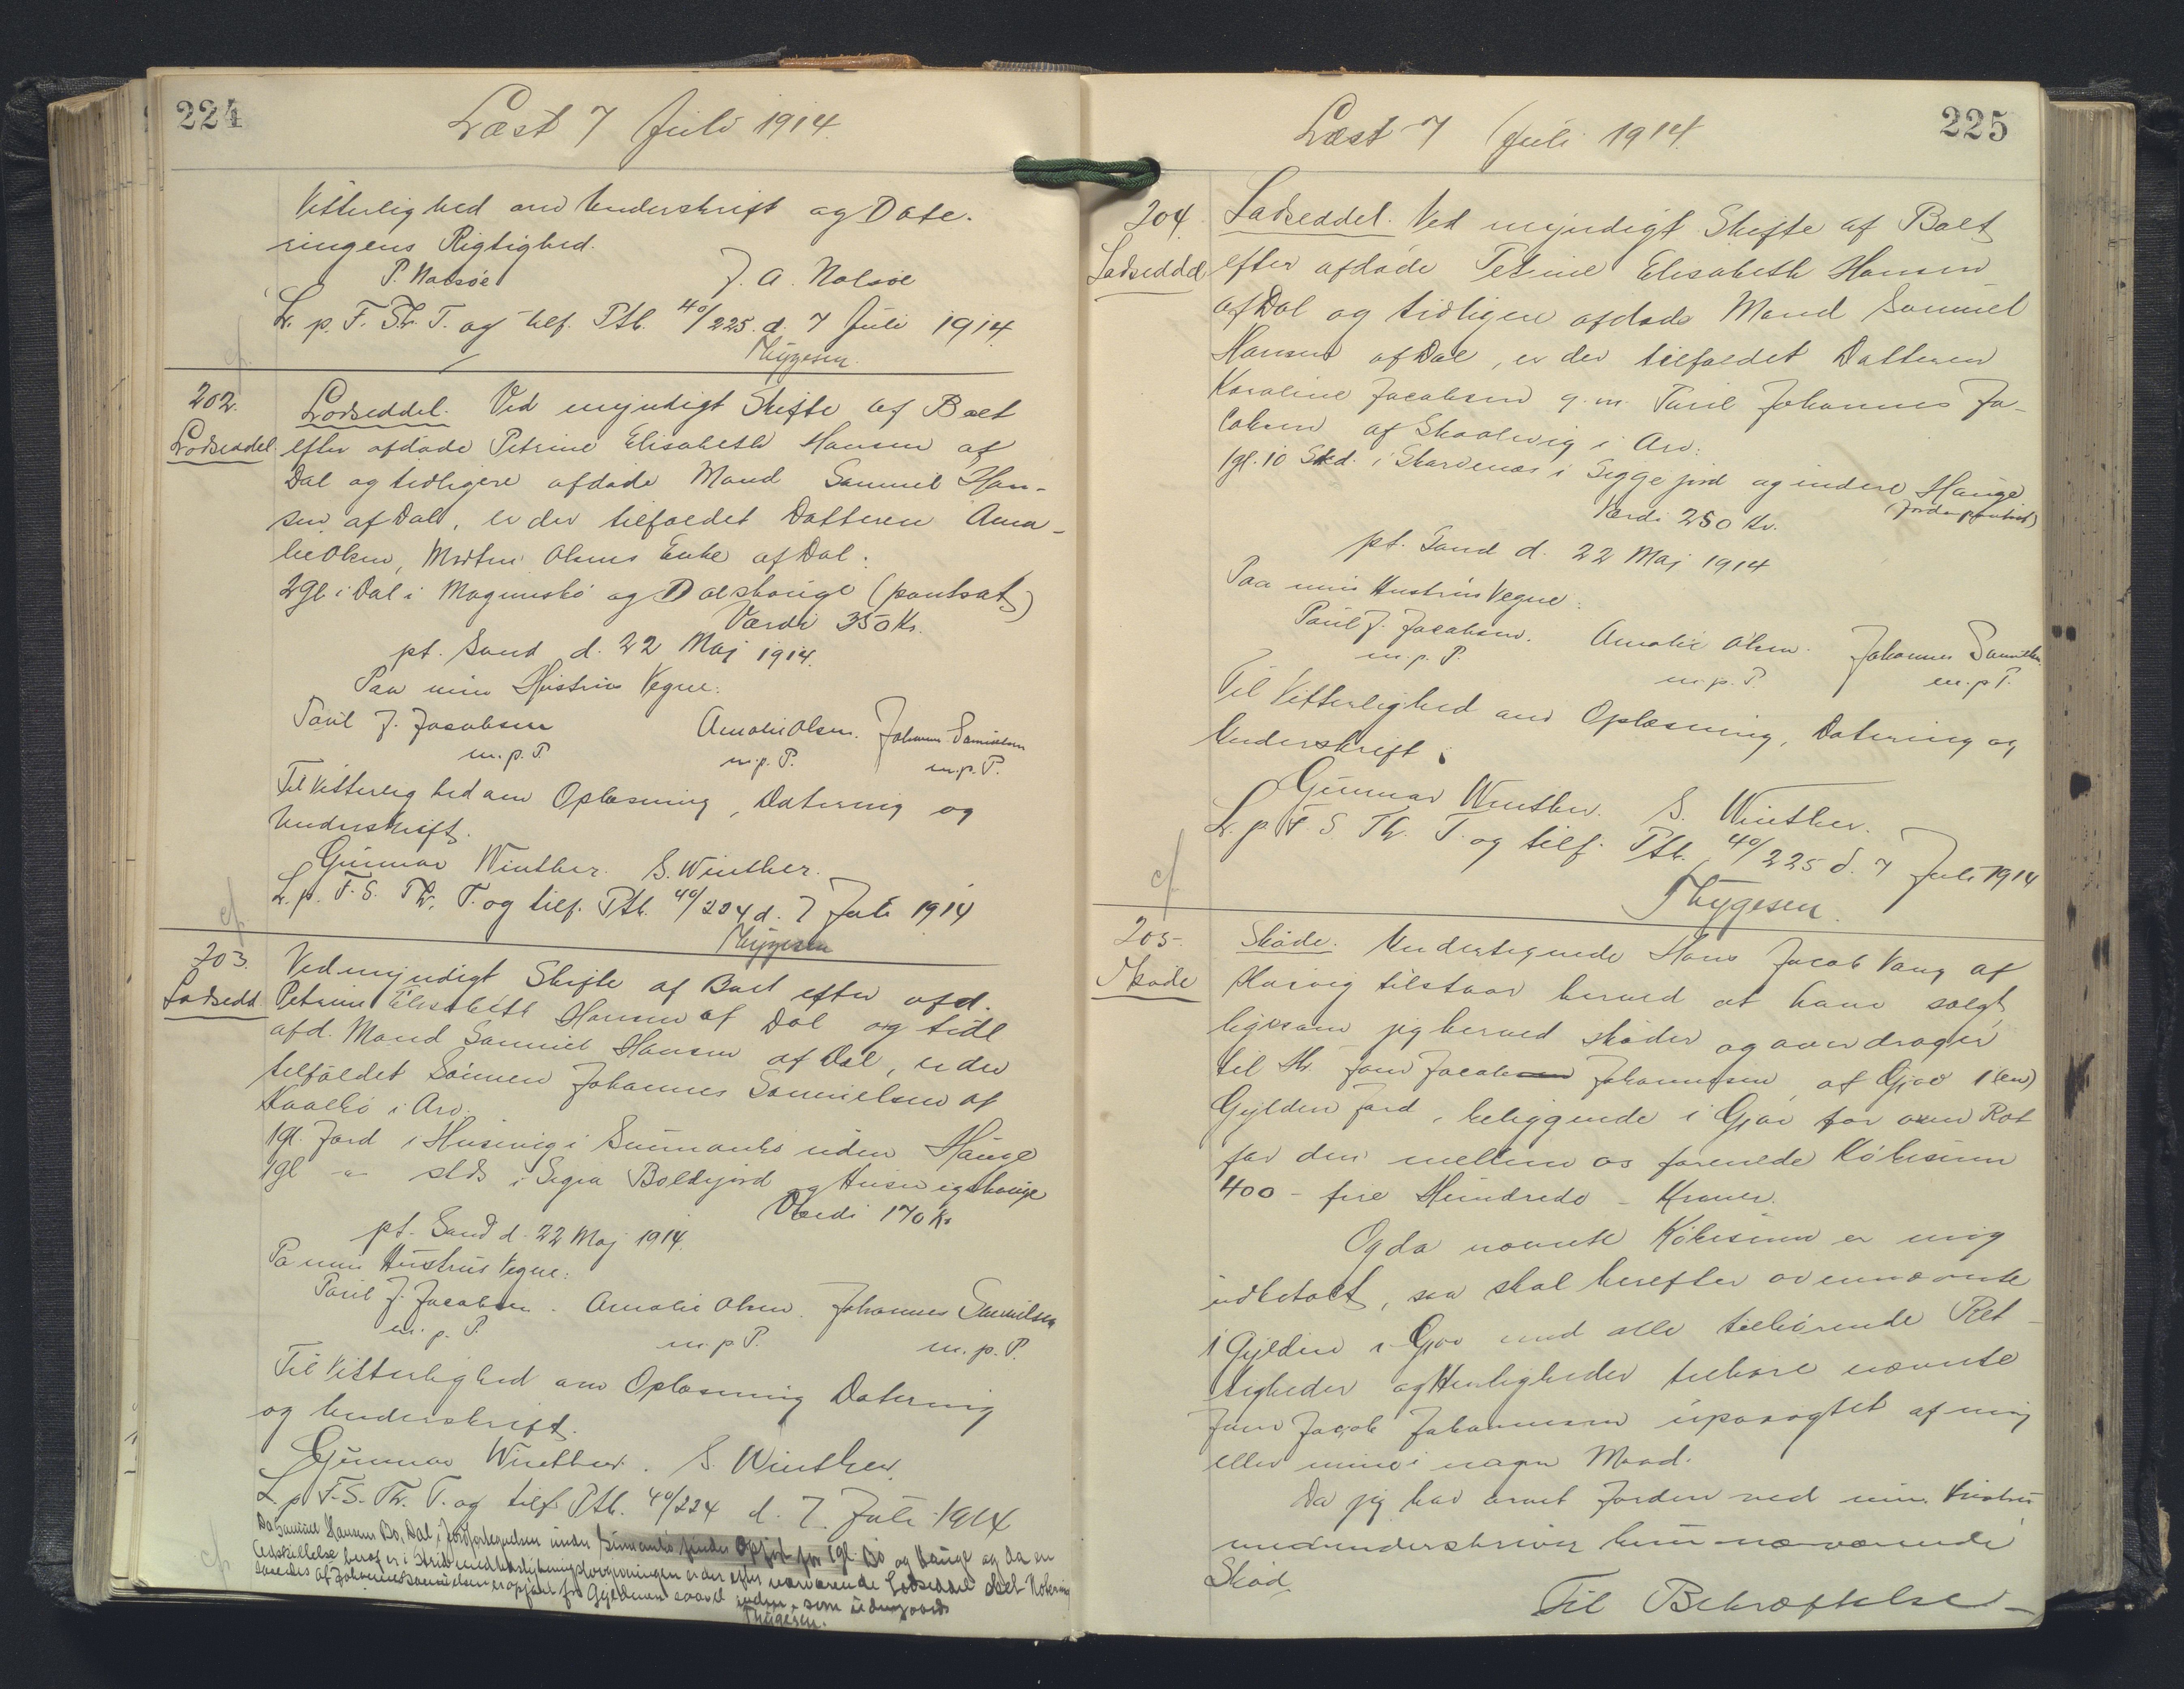 224
Læst 7 Juli 1914.
Vitterlighed om Underskrift og Date-
ringens Rigtighed.
P. Nolsöe J. A. Nolsöe
L. p. F. S. Th. T. og tilf. Ptb. 40/225. d. 7 Juli 1914.
Thygesen.
202.
Lodseddel.
Lodseddel. Ved myndigt Skifte af Boet
efter afdøde Petrine Elisabeth Hansen af
Dal og tidligere afdøde Mand Samuel Han-
sen af Dal, er der tilfaldet Datteren Ama-
lie Olsen, Morten Olsens Enke af Dal:
2 Gl i Dal i Mogunskó og Dalshauge (pantsat)
Værdi 350 Kr.
pt. Sand d. 22 Maj 1914.
Paa min Hustrus Vegne:
Poul J. Jacobsen Amalie Olsen. Johannes Samuelsen
m.p.P. m.p.P. m.p.P.
Til Vitterlighed om Oplæsning, Datering og
Underskrift.
Gunnar Winther. S. Winther.
L. p. F. S. Th. T. og tilf. Ptb. 40/224 d. 7 Juli 1914
Thygesen
203.
Lodsedd.
Ved myndigt Skifte af Boet efter afd.
Petrine Elisabeth Hansen af Dal og tidl
afd. Mand Samuel Hansen af Dal, er der
tilfaldet Sönnen Johannes Samuelsen af
i Arv.
1 gl. Jord i Husevig i uden Hauge
1 gl - " - stds i Boldejord og Husevigshauge
Værdi 170 Kr
pt. Sand d. 22 Maj 1914.
Pa min Hustrus Vegne:
Poul J. Jacobsen. Amalie Olsen. Johannes Samuelsen
m. p. P. m. p P. m. p. P.
Til Vitterlighed om Oplæsning Datering
og Underskrift.
Gunnar Winther. S. Winther.
L. p F. S. Th. T. og tilf. Ptb. 40/224 d. 7. Juli 1914
Da Samuel Hansens Bo, Dal i Jordfortegnelsen under finder Opført for 1 gl. Bö og Hauge og da en
Adskillelse heraf er i Strid med er der efter nærværende Lodseddel sket Notering
saaledes at Johannes Samuelsen er opført for Gyldenen saavel indm. som udengaards
Thygesen.
225
Læst 7 Juli 1914.
204.
Lodseddel
Lodseddel. Ved myndigt Skifte af Boet
efter afdøde Petrine Elisabeth Hansen
af Dal og tidligere afdøde Mand Samuel
Hansen af Dal, er der tilfaldet Datteren
Karoline Jacobsen g. m. Poul Johannes Ja-
cobsen af Skaalevig i Arv:
1 gl. 10 Skd. i Skarvenæs i Siggejord og indere Hauge
(Jorden pantsat)
Værdi 250 Kr.
pt. Sand d. 22 Maj 1914
Paa min Hustrus Vegne:
Poul J. Jacobsen. Amalie Olsen. Johannes Samuelsen
m. p. P. m. p. P. m. p P.
Til Vitterlighed om Oplæsning, Datering og
Underskrift:
Gunnar Winther. S. Winther.
L. p. F. S Th. T. og tilf. Ptb. 40/225 d. 7 Juli 1914
Thygesen.
205.
Skøde
Skøde. Undertegnede Hans Jacob Vang af
tilstaar herved at have solgt,
ligesom jeg herved skøder og overdrager
til Hr. Joen Jacob Johannesen, af Gjov 1 (en)
Gylden Jord, beliggende i Gjov for oven Rot
for den mellem os forenede Købesum
400 - fire Hundrede - Kroner.
Og da nævnte Købesum er mig
udbetalt, saa skal herefter ovennævnte
1 Gylden i Gjov med alle tilhørende Ret-
tigheder og Herligheder tilhøre nævnte
Joen Jacob Johannesen upaaagtet af mig
eller mine i nogen Maad.
Da jeg har arvet Jorden ved min Hustru
medunderskriver hun nærværende
Skød.
Til Bekræftelse -